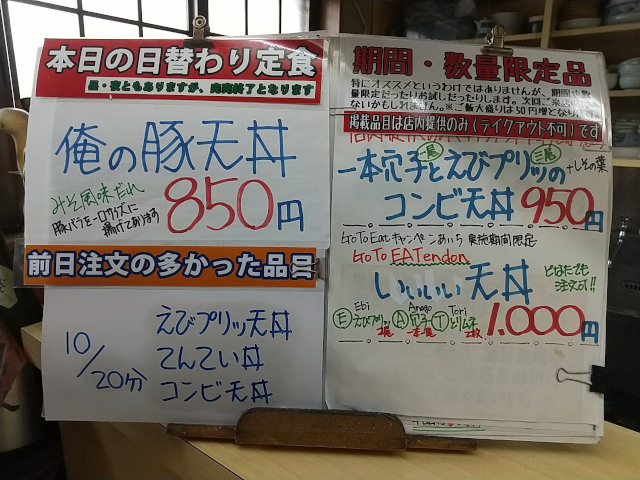 本日の日替わり定食
昼・夜ともありますが、完売終了となります
俺の豚天丼
みそ風味だれ
豚バラを一口サイズに
揚げてあります
850円
前日注文の多かった品目
10/20分
えびプリッ天丼
てんてい丼
コンビ天丼
期間・数量限定品
特にオススメというわけではありませんが、期間や数
量限定だったりお試しだったりします。次回ご来店
ないかもしれません。※ご飯大盛りは50円増となり
掲載品目は店内提供のみ(テイクアウト不可)です
一本穴子とえびプリッの
一尾 三尾
+しその葉
コンビ天丼 950円
GoToEatキャンペーンあいち 実施期間限定
GoTo EATendon
いいいい天丼
どなたでも
注文可!!
Ebi Anago Tori
Eえびプリッ A穴子 Tとりムネ
2尾 一本 2枚
1,000円